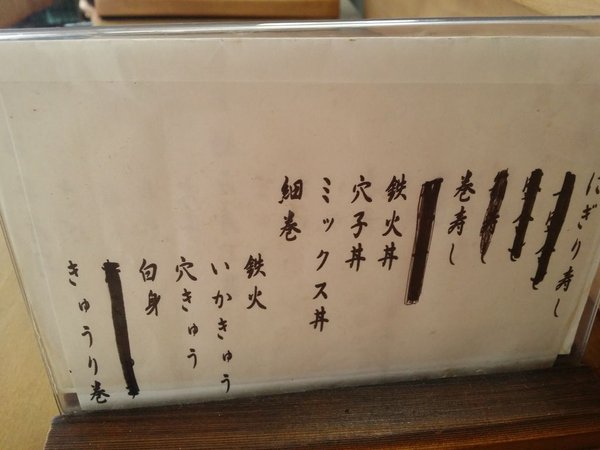 にぎり寿し
巻寿し
鉄火丼
穴子丼
ミックス丼
細巻
鉄火
いかきゅう
穴きゅう
白身
きゅうり巻